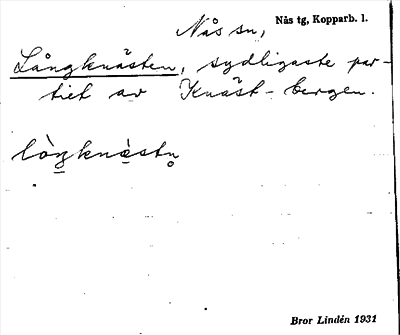 Nås sn, Nås tg, Kopparb. l.
Långknästen, sydligaste par-
tiet av Knäst-bergen.
lòŋknæ̀stn̥
Bror Lindén 1931